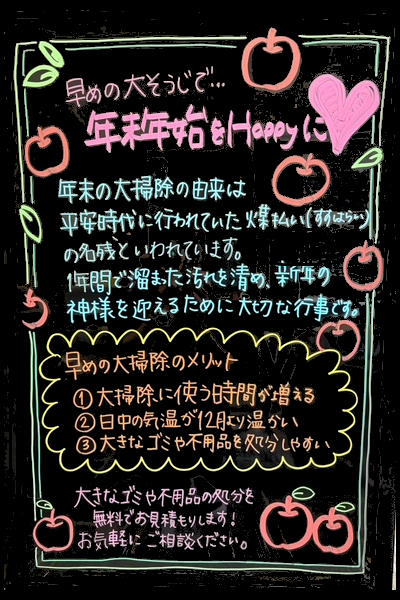 早めの大そうじで…
年末年始をHappyに
年末の大掃除の由来は
平安時代に行われていた煤払い(すすはらい)
の名残といわれています。
1年間で溜まった汚れを清め、新年の
神様を迎えるために大切な行事です。
早めの大掃除のメリット
①大掃除に使う時間が増える
②日中の気温が12月より温かい
③大きなゴミや不用品を処分しやすい
大きなゴミや不用品の処分を
無料でお見積もりします!
お気軽にご相談ください。